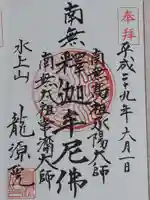 奉拝
平成二九年六月一日
南無高祖承陽大師
南無釋迦牟尼佛
南無太祖常済大師
水上山
龍源院